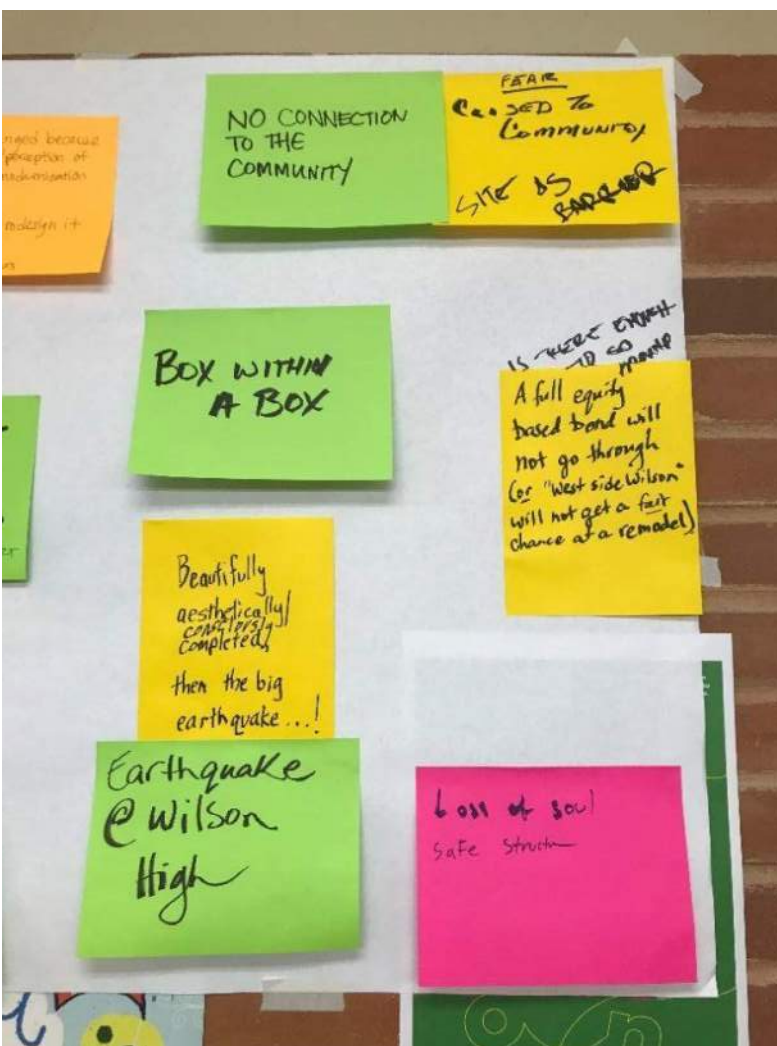 nged because
perception of
modernization
redesign it
NO CONNECTION
TO THE
COMMUNITY
FEAR
CLOSED TO
COMMUNITY
SITE AS
BARRIER
BOX WITHIN
A BOX
IS THERE ENOUGH
TO GO
A full equity
based bond will
not go through
(or "west side Wilson"
will not get a fair
chance at a remodel)
Beautifully
aesthetically/
consciously
completed,
then the big
earthquake...!
Earthquake
@ Wilson
High
Loss of soul
Safe